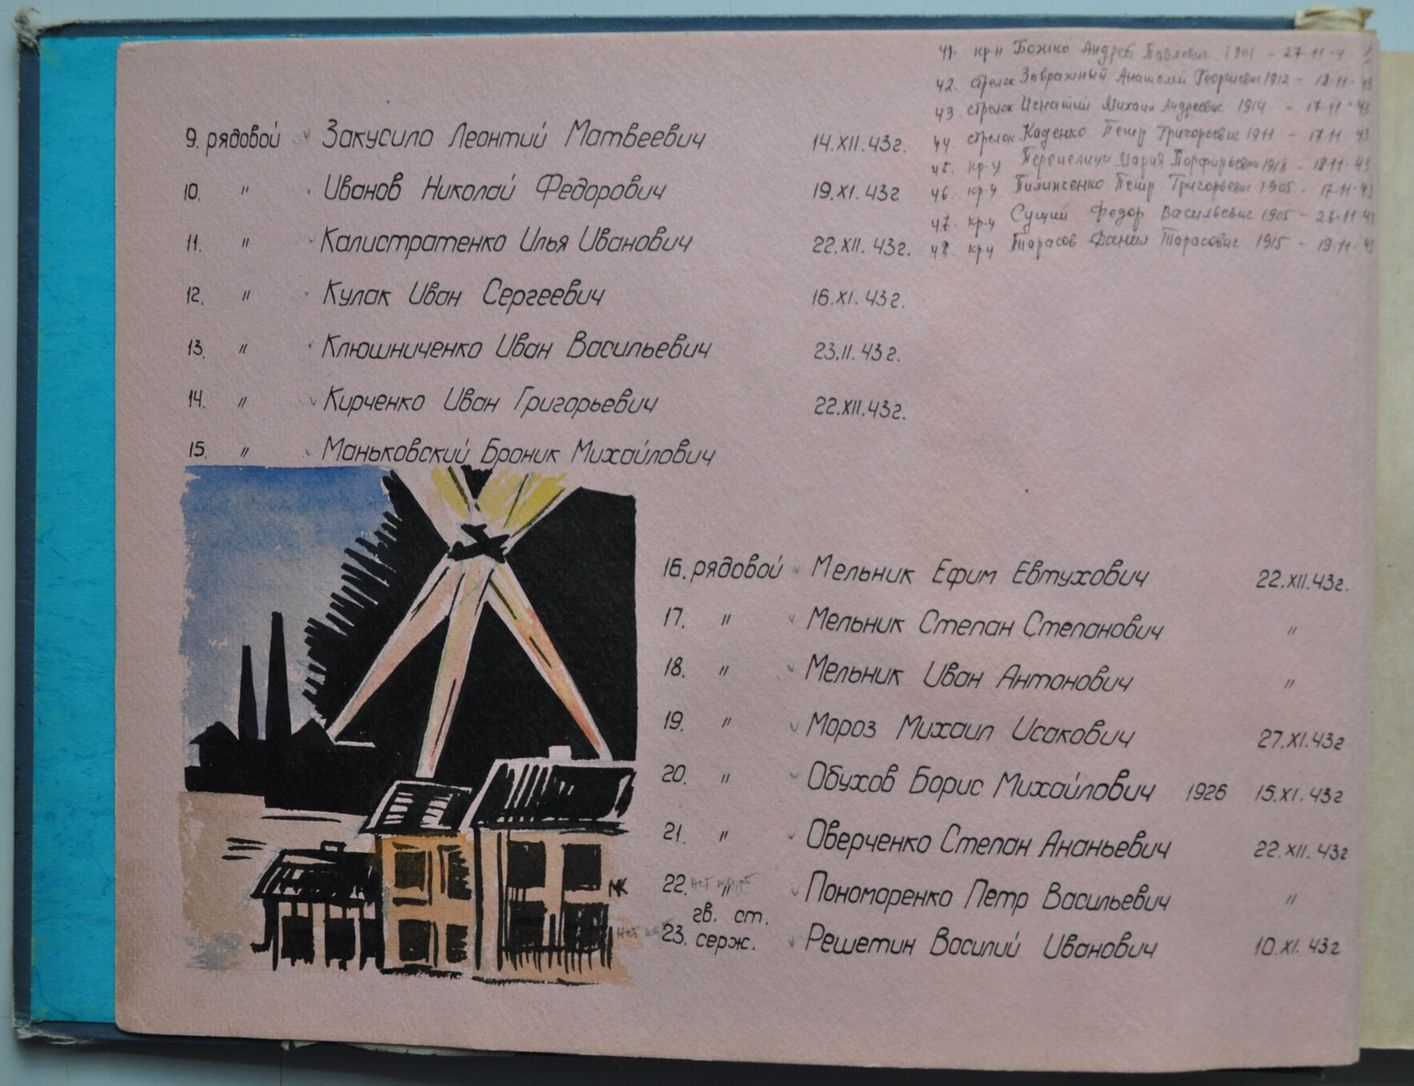 41. кр-н Божко Андрей Павлович 1901 - 27-11-4
42. стрелок Завражный Анатолий Георгиевич 1912 - 18-11-43
43. стрелок Игнатий Михаил Андреевич 1914 - 17-11-43
44. стрелок Каденко Петр Григорьевич 1911 - 17-11-43
45. кр-ц Перепелица Мария Порфирьевна 1918 - 18-11-43
46. кр-ц Пилипченко Петр Григорьевич 1905 - 17-11-43
47. кр-ц Сущий Федор Васильевич 1905 - 27-11-43
48. кр-ц Тарасов Данил Тарасович 1915 - 19-11-43
9. рядовой Закусило Леонтий Матвеевич 14.XII.43г.
10. " Иванов Николай Федорович 19.XI.43г
11. " Калистратенко Илья Иванович 22.XII.43г.
12. " Кулак Иван Сергеевич 16.XI.43г.
13. " Клюшниченко Иван Васильевич 23.II.43г.
14. " Кирченко Иван Григорьевич 22.XII.43г.
15. " Маньковский Броник Михайлович
16. рядовой Мельник Ефим Евтухович 22.XII.43г.
17. " Мельник Степан Степанович "
18. " Мельник Иван Антонович "
19. " Мороз Михаил Исакович 27.XI.43г
20. " Обухов Борис Михайлович 1926 15.XI.43г
21. " Оверченко Степан Ананьевич 22.XII.43г
22. " Пономоренко Петр Васильевич "
гв. ст.
23. серж. Решетин Василий Иванович 10.XI.43г
МК